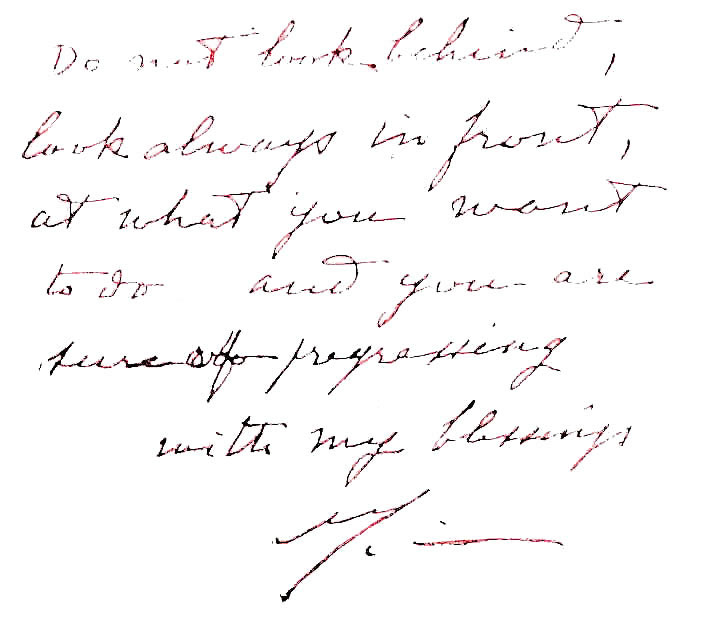 Do not look behind,
look always in front,
at what you want
to do and you are
sure of progressing
with my blessings